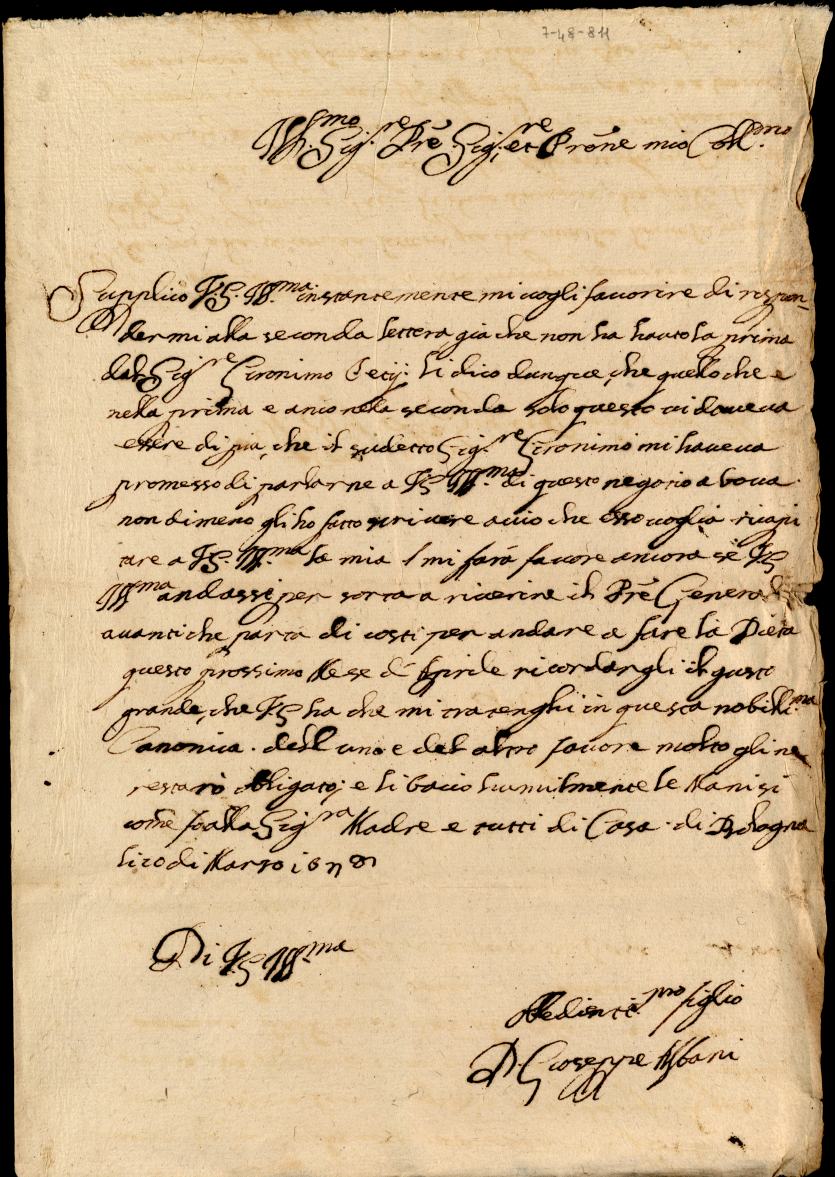 7-48-811
Ill.mo Sig.re Prē Sig.re et Prōne mio Col.mo
Supplico V.S. Ill.ma instantemente mi vogli favorire di respon-
dermi alla seconda lettera gia che non ha hauto la prima
dal Sig.re Gironimo li dico dunque, che quello che e
nella prima e anco nella seconda solo questo vi doveva
essere di piu, che il sudetto Sig.re Gironimo mi haveva
promesso di parlarne a VS Ill.ma di questo negotio a bocca
non dimeno gli ho fatto scrivere acciò che esso voglia ricapi
tare a VS. Ill.ma la mia mi farà favore ancora se VS
Ill.ma andassi per sorta a riverire il Prē Generale
avanti che parta di costi per andare a fare la Dieta
questo prossimo Mese d' Aprile ricordargli il gusto
grande, che VS ha che mi trattenghi in questa nobiliss.ma
Canonica. dell uno e del altro favore molto gli ne
restarò obligato; e li bacio humilmente le Mani si
come fo alla Sig.ra Madre e tutti di Casa. di Bologna
li 20 di Marzo
Di VS Ill.ma
Obedientis.mo figlio
D. Gioseppe Albani